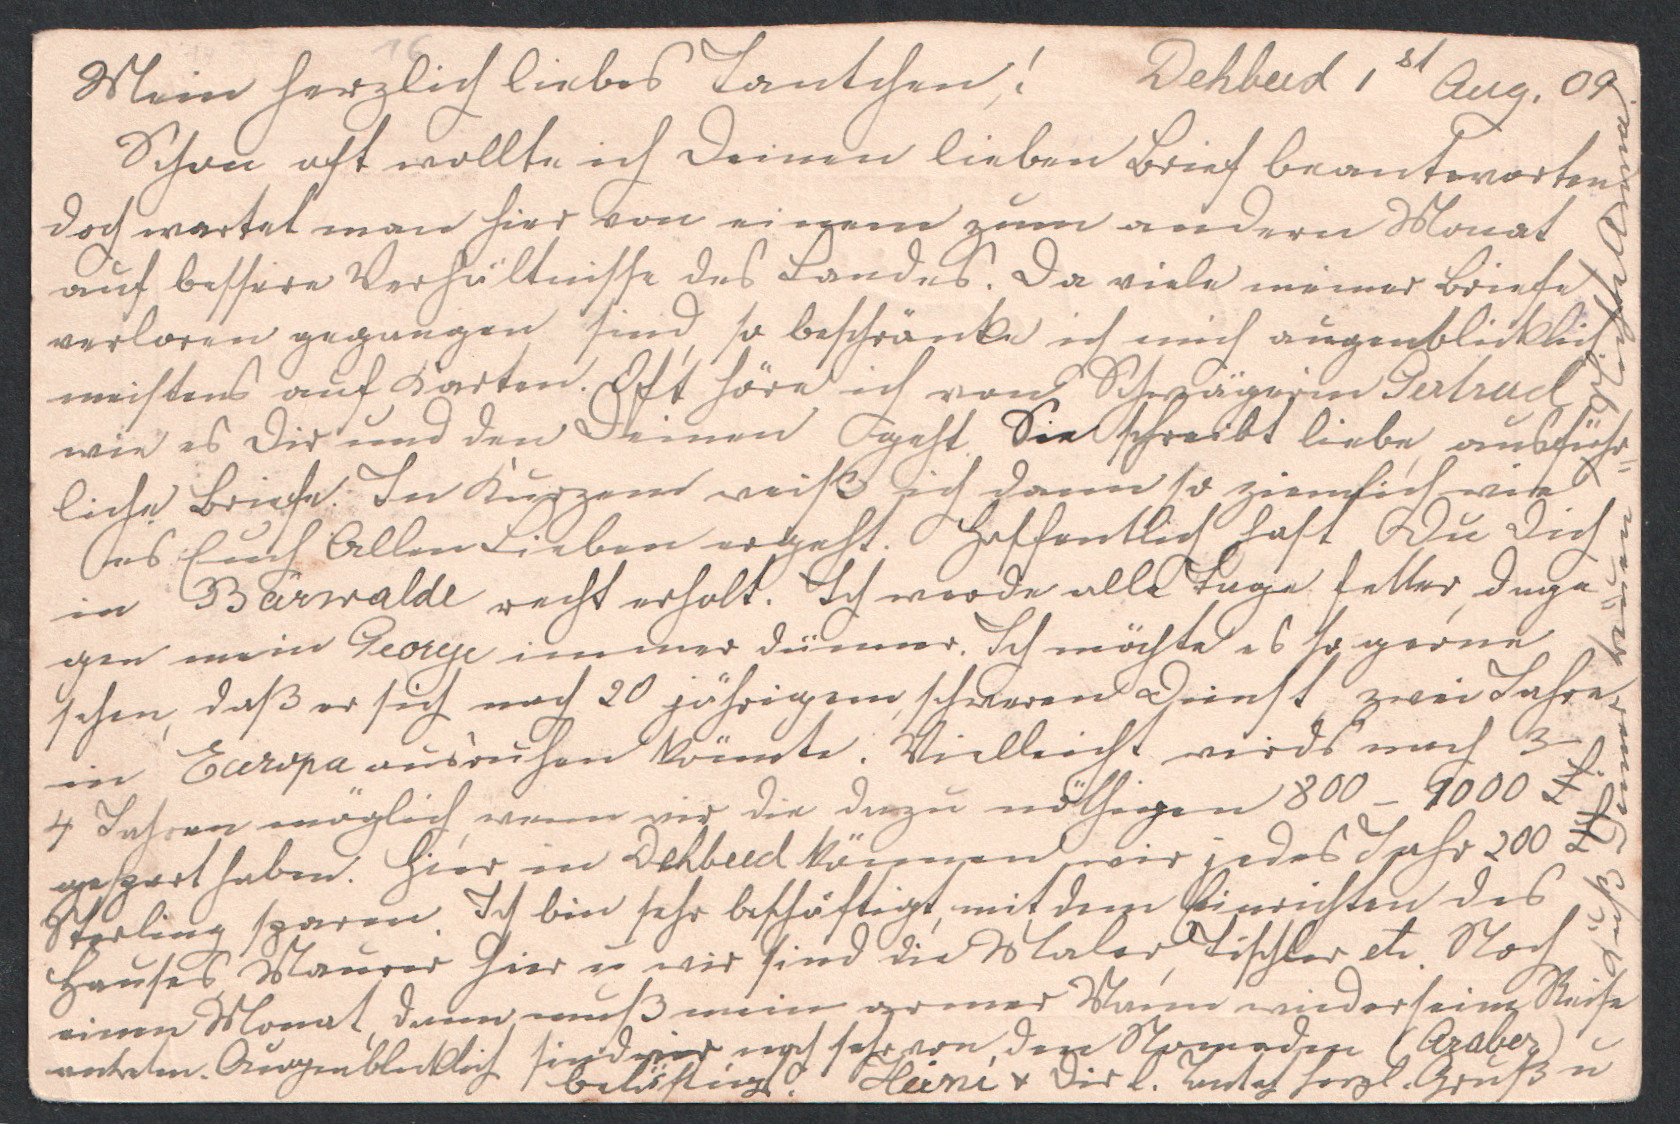 Mein herzlich liebes Tantchen,! Dehbeed 1st Aug. 09
Schon oft wollte ich Deinen lieben Brief beantworten
doch wartet man hier von einem zum andern Monat
auf bessere Verhältnisse des Landes. Da viele meiner Briefe
verloren gegangen sind, so beschränke ich mich augenblicklich
meistens auf Karten. Oft höre ich von Schwägerin Gertrud
wie es Dir und den Deinen geht. Sie schreibt liebe, ausführ=
liche Briefe. In Kurzem weiß ich dann so ziemlich wie
es Euch Allen Lieben ergeht. Hoffentlich hast Du Dich
in Bärwalde recht erholt. Ich werde alle Tage fetter, dage=
gen mein George immer dünner. Ich möchte es so gerne
sehen, daß er sich nach 20 jährigem, schweren Dienst, zwei Jahre
in Europa ausruhen könnte. Vielleicht wirds nach 3–
4 Jahren möglich, wenn wir die dazu nöthigen 800 – 1000 £
gespart haben. Hier in Dehbeed können wir jedes Jahr 200 £
Sterling sparen. Ich bin sehr beschäftigt, mit dem Einrichten des
Hauses, Maurer hier u wir sind die Maler, Tischler etc. Noch
einen Monat, dann muß mein armer Mann wieder seine Reise
antreten. Augenblicklich sind wir noch sehr von den Nomaden (Araber)
belästigt. Heini + Dir l. Tantch herzl. Gruß u